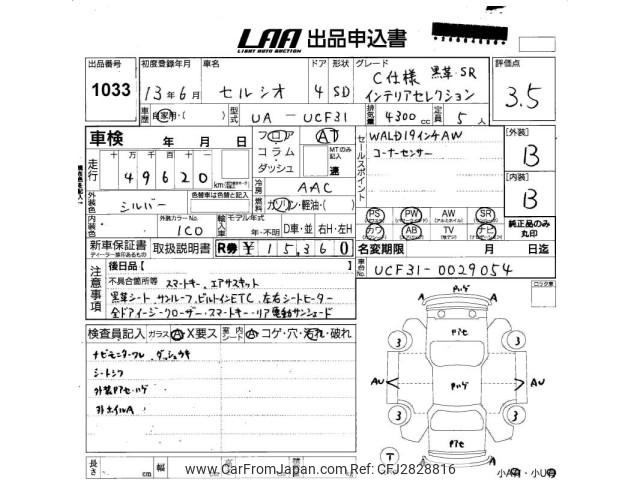 LAA 出品申込書
LIGHT AUTO AUCTION
出品番号 初度登録年月 車名 ドア 形状 グレード 評価点
1033 13年6月 セルシオ 4 SD C仕様 黒革・SR 3.5
インテリアセレクション
車歴 自家用・( ) 型式 UA - UCF31 排気量 4300cc 定員 5人
車検 年 月 日 フロア AT セールスポイント WALD19インチAW [外装]
コラム MTのみ記入 コーナーセンサー B
ダッシュ 速
走行 十万 万 千 百 十 一
49620 km 冷房 AAC [内装]
外装色 シルバー 色替車は色替と記入 燃料 ガソリン・軽油・( ) B
内装色 外装カラーNo. 1C0 輸入車 モデル年式 年・不明 D車・並 右H・左H
PS PW AW SR 純正品のみ丸印
カワ AB TV ナビ
新車保証書 取扱説明書 R券 ¥15,360 名変期限 年 月 日迄
ディーラー捺印あるもの
車台No. UCF31-0029054
注意事項 後日品【 】
不具合箇所等 スマートキー、エアサスキット
黒革シート、サンルーフ、ビルトインETC、左右シートヒーター
全ドアイージークローザー・スマートキー・リア電動サンシェード
ロック車
検査員記入 ガラス A X要ス 室内シート A コゲ・穴・汚れ・破れ
ナビモニターフレ、ダッシュウキ
シートシワ
外装PアセハゲPハゲ
外ホイルA
Pハゲ
Pアセ
3 3
AU Pハゲ AU
3 3
Pアセ
T
長さ cm 幅 cm 高
小A有・小U有
www.CarFromJapan.com Ref:CFJ2828816